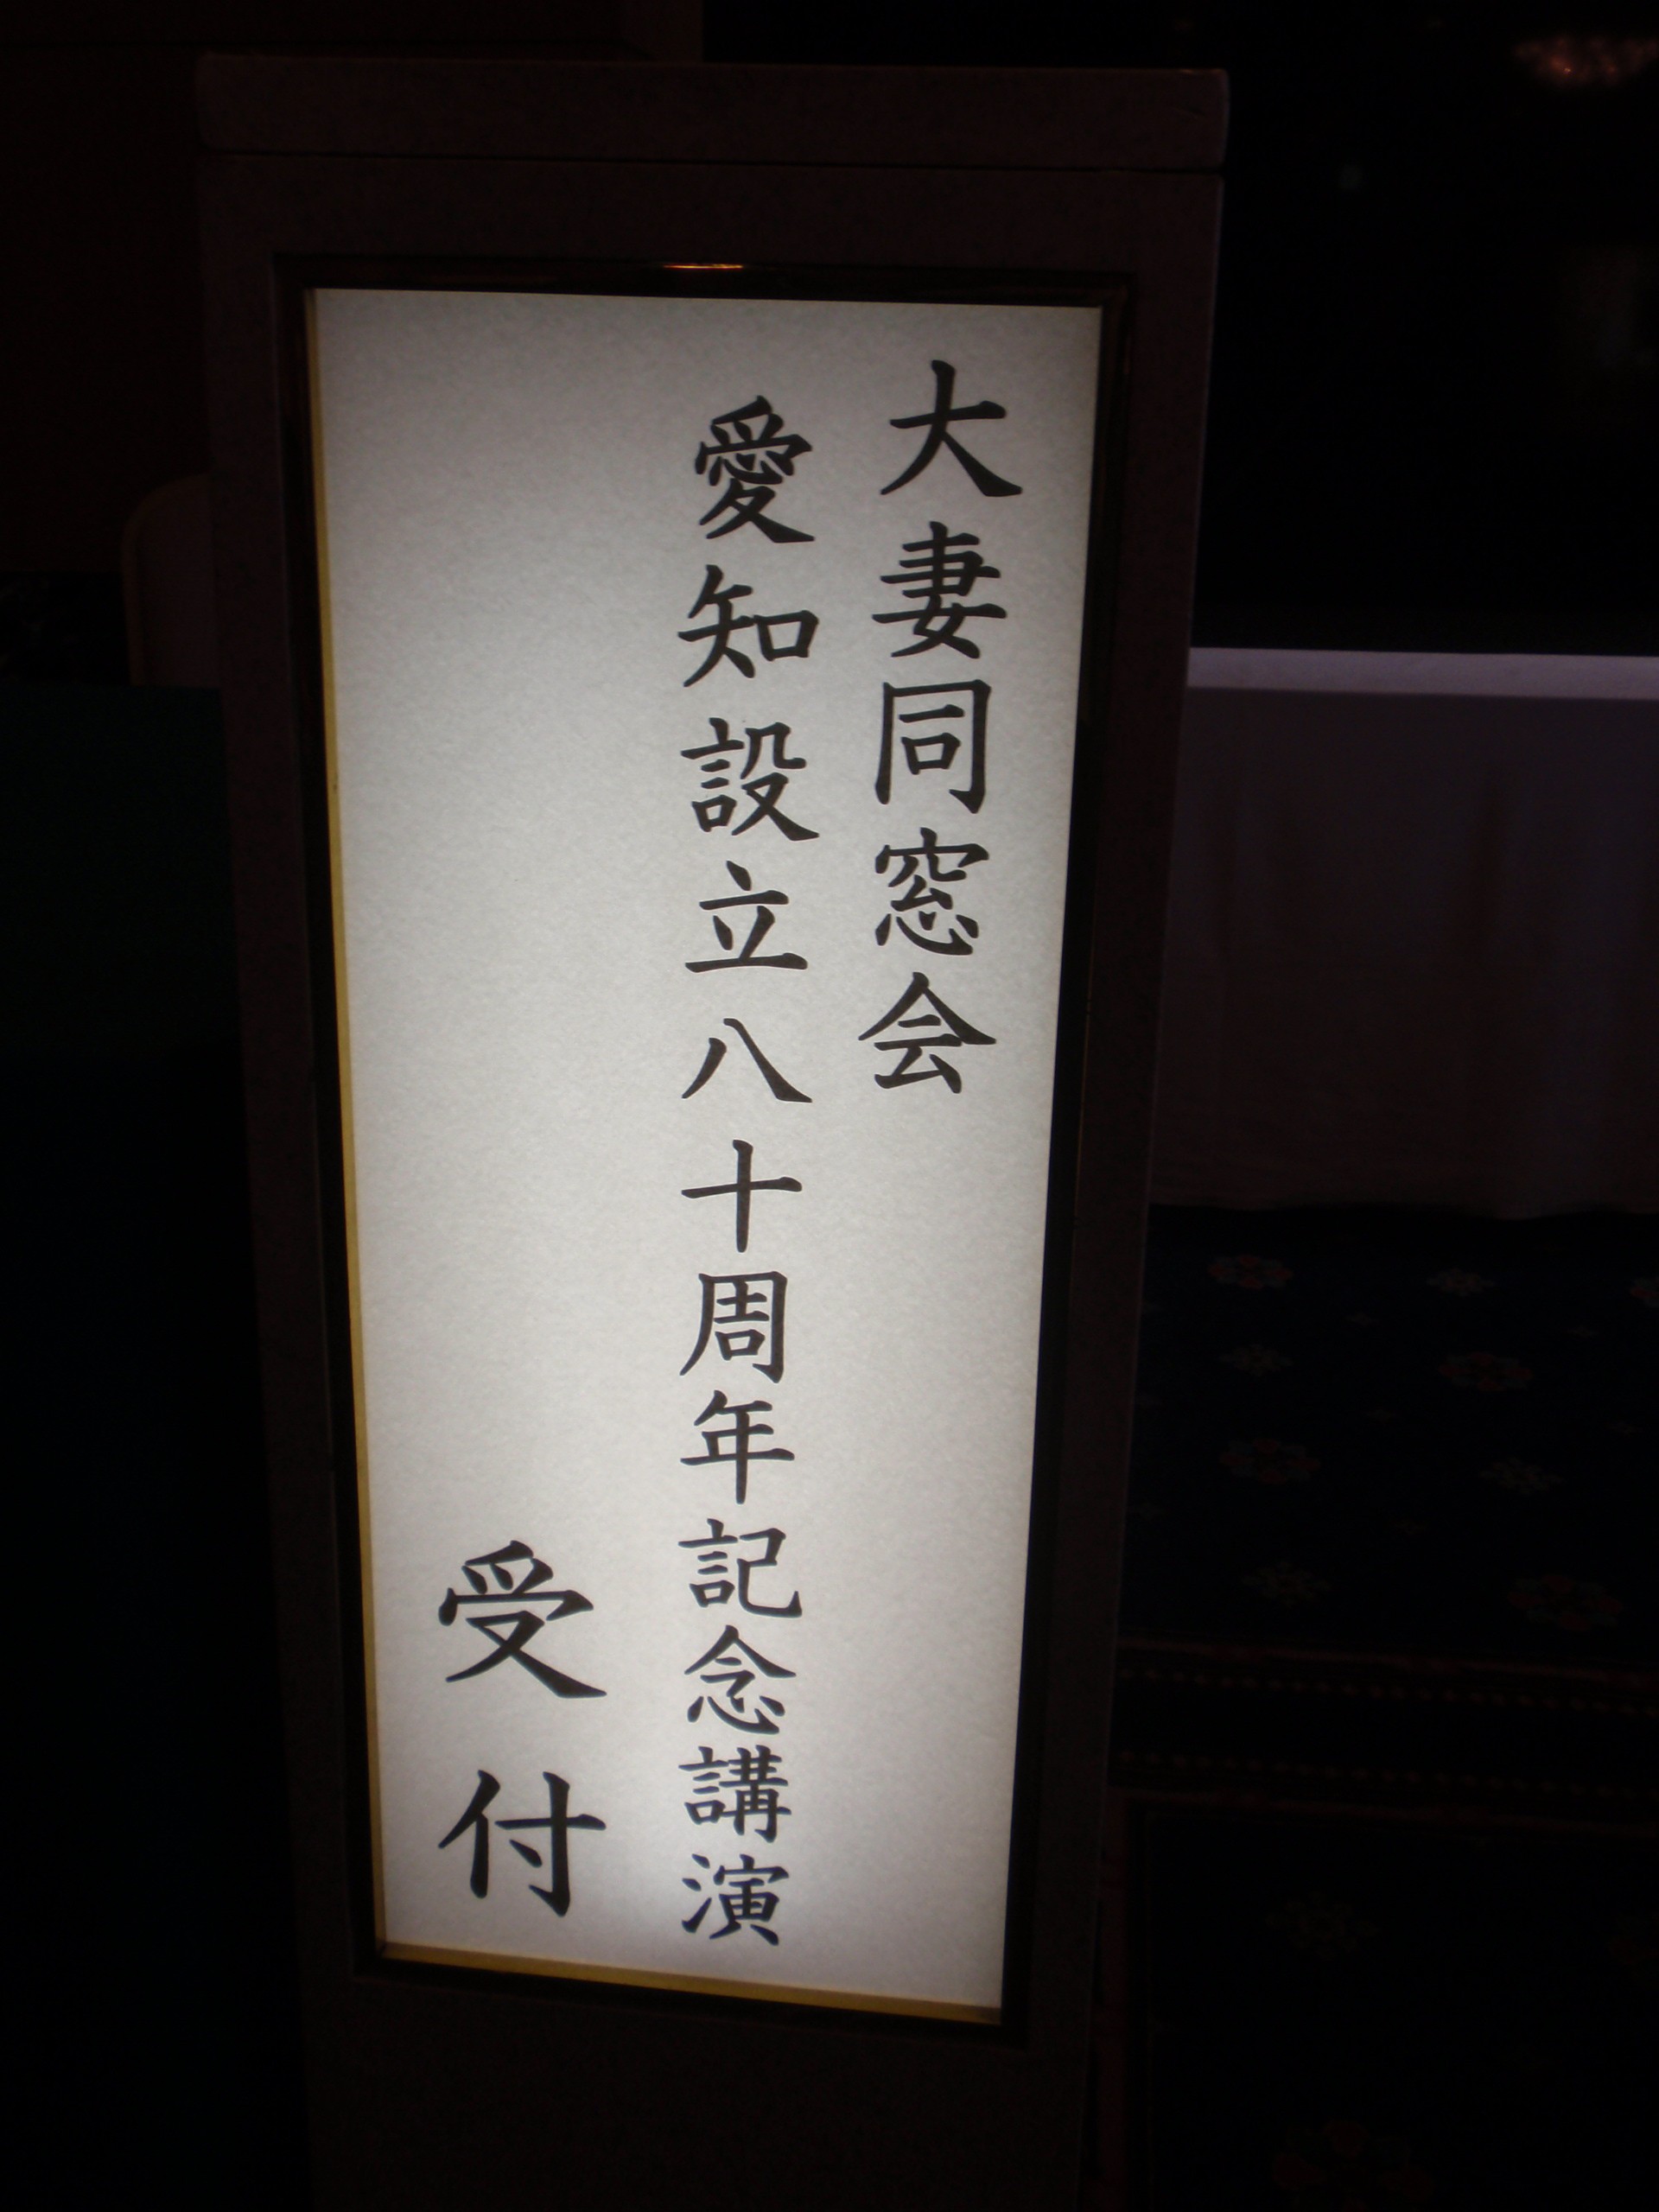 大妻同窓会
愛知設立八十周年記念講演
受付